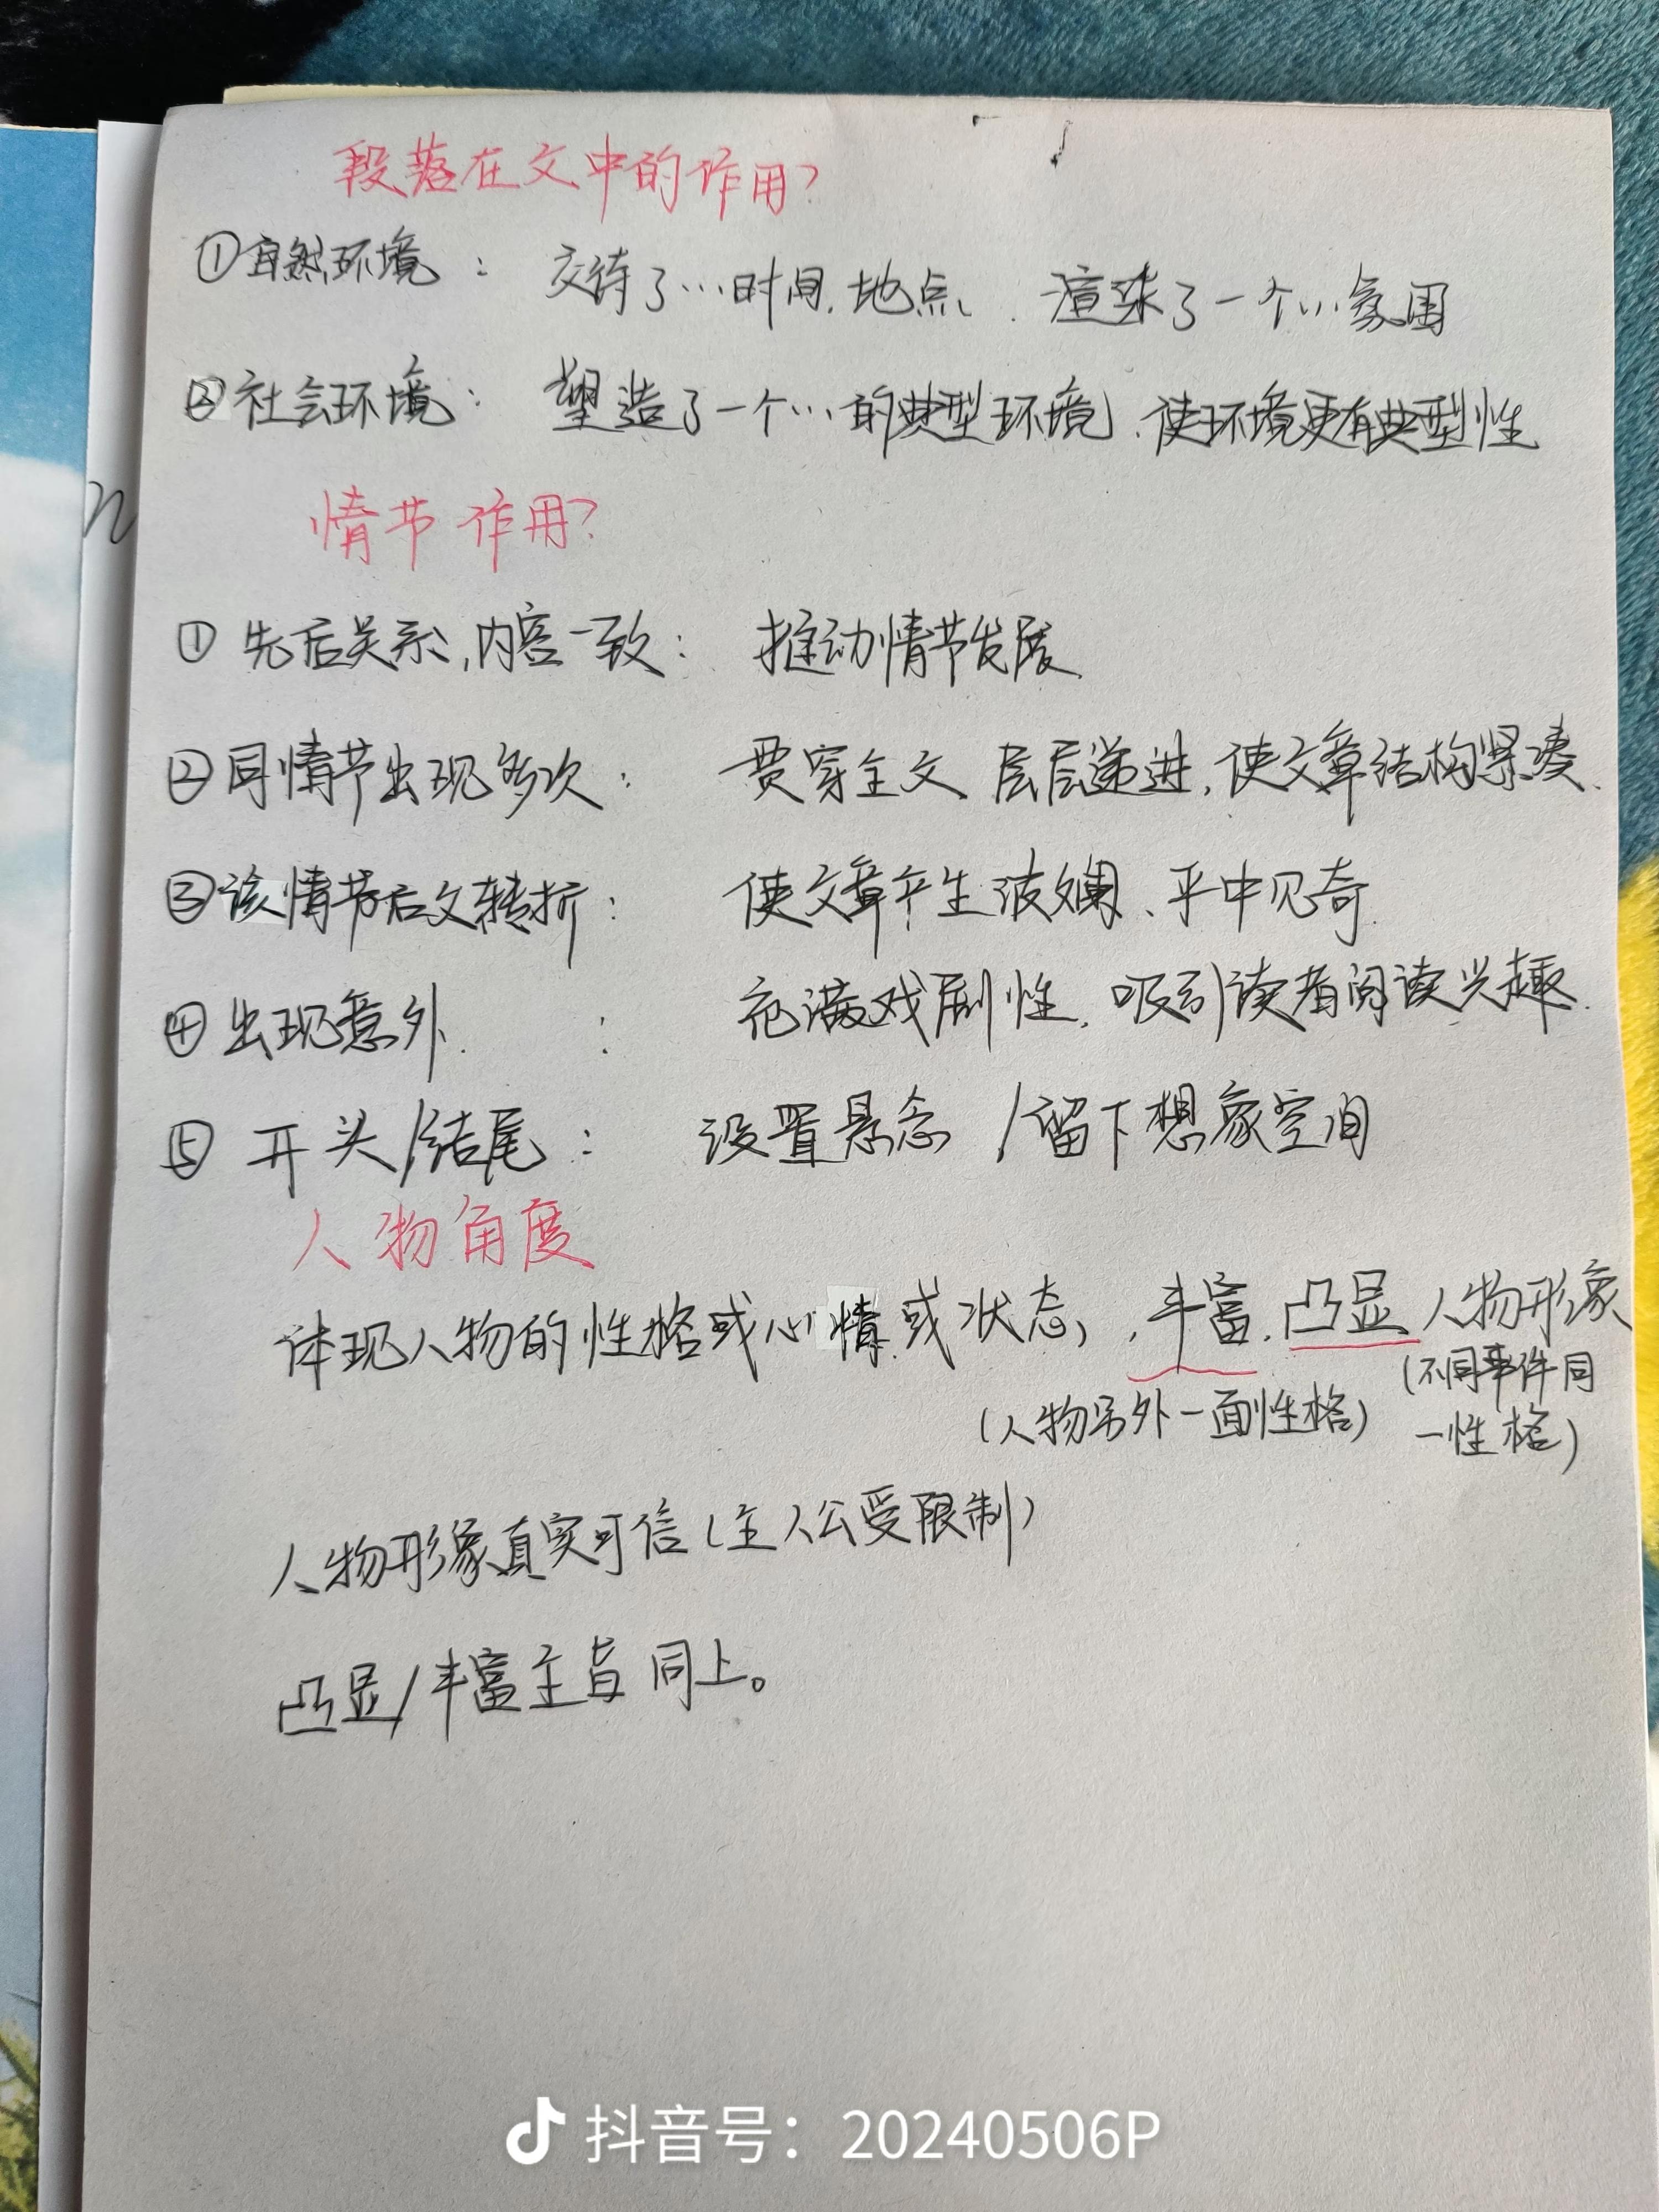 段落在文中的作用?
①自然环境： 交待了…时间、地点、渲染了一个…氛围
②社会环境： 塑造了一个…的典型环境、使环境更有典型性
情节作用?
① 先后关系，内容一致： 推动情节发展
②同情节出现多次： 贯穿全文、层层递进，使文章结构紧凑.
③该情节后文转折： 使文章产生波斓、平中见奇.
④出现意外. ： 充满戏剧性，吸引读者阅读兴趣.
⑤ 开头/结尾： 设置悬念 /留下想象空间
人物角度
体现人物的性格或心情或状态，丰富，凸显人物形象
(人物另外一面性格) (不同事件同
一性格)
人物形象真实可信(主人公受限制)
凸显/丰富主旨 同上。
n
抖音号：20240506P